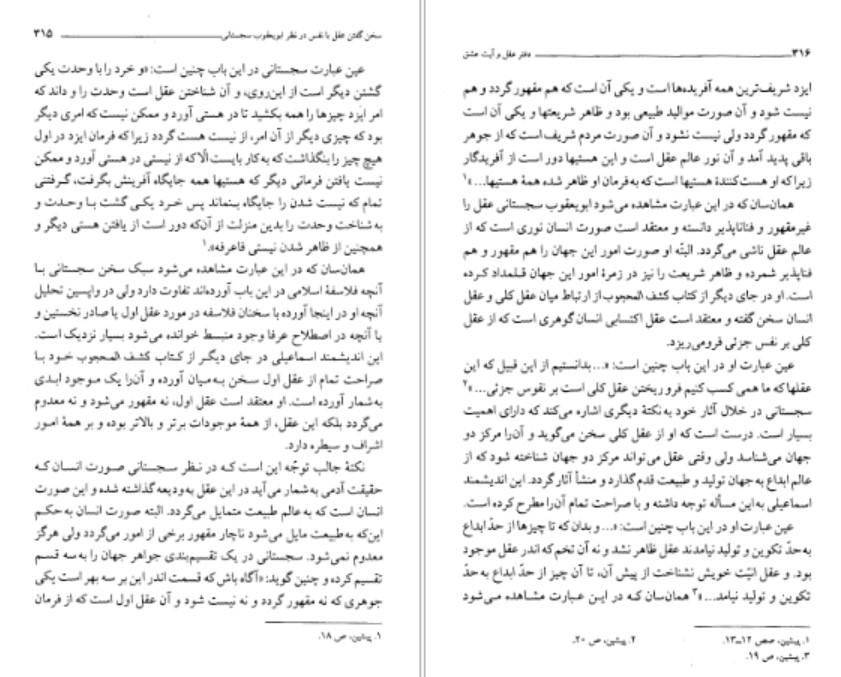 سخن گفتن عقل با نفس در نظر ابویعقوب سجستانی ۳۱۵
عین عبارت سجستانی در این باب چنین است: «و خرد را با وحدت یکی
گشتن دیگر است از این‌روی، و آن شناختن عقل است وحدت را و داند که
امر ایزد چیزها را همه بکشید تا در هستی آورد و ممکن نیست که امری دیگر
بود که چیزی دیگر از آن امر، از نیست هست گردد زیرا که فرمان ایزد در اول
هیچ چیز را بنگذاشت که به کار بایست الّا که از نیستی در هستی آورد و ممکن
نیست یافتن فرمانی دیگر که هستیها همه جایگاه آفرینش بگرفت، گرفتنی
تمام که نیست شدن را جایگاه بنماند پس خرد یکی گشت با وحدت و
به شناخت وحدت را بدین منزلت از آن‌که دور است از یافتن هستی دیگر و
همچنین از ظاهر شدن نیستی فاعرفه».۱
همان‌سان که در این عبارت مشاهده می‌شود سبک سخن سجستانی با
آنچه فلاسفهٔ اسلامی در این باب آورده‌اند تفاوت دارد ولی در واپسین تحلیل
آنچه او در اینجا آورده با سخنان فلاسفه در مورد عقل اول یا صادر نخستین و
یا آنچه در اصطلاح عرفا وجود منبسط خوانده می‌شود بسیار نزدیک است.
این اندیشمند اسماعیلی در جای دیگر از کتاب کشف المحجوب خود با
صراحت تمام از عقل اول سخن به میان آورده و آن‌را یک موجود ابدی
به‌شمار آورده است. او معتقد است عقل اول، نه مقهور می‌شود و نه معدوم
می‌گردد بلکه این عقل، از همهٔ موجودات برتر و بالاتر بوده و بر همهٔ امور
اشراف و سیطره دارد.
نکتهٔ جالب توجّه این است که در نظر سجستانی صورت انسان که
حقیقت آدمی به‌شمار می‌آید در این عقل به‌ودیعه گذاشته شده و این صورت
انسان است که به عالم طبیعت متمایل می‌گردد. البته صورت انسان به‌حکم
این‌که به طبیعت مایل می‌شود ناچار مقهور برخی از امور می‌گردد ولی هرگز
معدوم نمی‌شود. سجستانی در یک تقسیم‌بندی جواهر جهان را به سه قسم
تقسیم کرده و چنین گوید: «آگاه باش که قسمت اندر این بر سه بهر است یکی
جوهری که نه مقهور گردد و نه نیست شود و آن عقل اول است که از فرمان
۱. پیشین، ص ۱۸.
۳۱۶ دفتر عقل و آیت عشق
ایزد شریف‌ترین همه آفریده‌ها است و یکی آن است که هم مقهور گردد و هم
نیست شود و آن صورت موالید طبیعی بود و ظاهر شریعتها و یکی آن است
که مقهور گردد ولی نیست نشود و آن صورت مردم شریف است که از جوهر
باقی پدید آمد و آن نور عالم عقل است و این هستیها دور است از آفریدگار
زیرا که او هست‌کنندهٔ هستیها است که به‌فرمان او ظاهر شده همهٔ هستیها...»۱
همان‌سان که در این عبارت مشاهده می‌شود ابویعقوب سجستانی عقل را
غیرمقهور و فناناپذیر دانسته و معتقد است صورت انسان نوری است که از
عالم عقل ناشی می‌گردد. البتّه او صورت امور این جهان را هم مقهور و هم
فناپذیر شمرده و ظاهر شریعت را نیز در زمرهٔ امور این جهان قلمداد کرده
است. او در جای دیگر از کتاب کشف المحجوب از ارتباط میان عقل کلی و عقل
انسان سخن گفته و معتقد است عقل اکتسابی انسان گوهری است که از عقل
کلی بر نفس جزئی فرومی‌ریزد.
عین عبارت او در این باب چنین است: «...بدانستیم از این قبیل که این
عقلها که ما همی کسب کنیم فرو ریختن عقل کلی است بر نفوس جزئی...»۲
سجستانی در خلال آثار خود به نکتهٔ دیگری اشاره می‌کند که دارای اهمیت
بسیار است. درست است که او از عقل کلی سخن می‌گوید و آن‌را مرکز دو
جهان می‌شناسد ولی وقتی عقل می‌تواند مرکز دو جهان شناخته شود که از
عالم ابداع به جهان تولید و طبیعت قدم گذارد و منشأ آثار گردد. این اندیشمند
اسماعیلی به این مسأله توجه داشته و با صراحت تمام آن‌را مطرح کرده است.
عین عبارت او در این باب چنین است: «...و بدان که تا چیزها از حدّ ابداع
به حدّ تکوین و تولید نیامدند عقل ظاهر نشد و نه آن تخم که اندر عقل موجود
بود. و عقل انیّت خویش نشناخت از پیش آن، تا آن چیز از حدّ ابداع به حدّ
تکوین و تولید نیامد...»۳ همان‌سان که در این عبارت مشاهده می‌شود
۱. پیشین، صص ۱۲ـ۱۳. ۲. پیشین، ص ۲۰.
۳. پیشین، ص ۱۹.